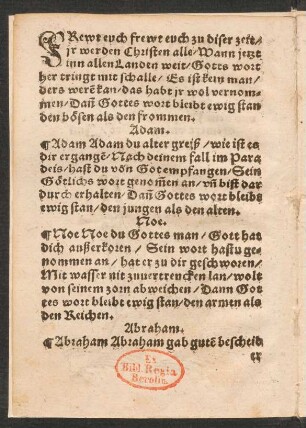 FRewt euch frewt euch zu diser zeit/
jr werden Christen alle/ Wann jetzt
inn allen Landen weit/ Gotts wort
her tringt mit schalle/ Es ist keyn man/
ders werē kan/ das habt jr wol vernom⸗
men/ Dañ Gottes wort bleibt ewig stan
den bösen als den frommen.
Adam.
¶ Adam Adam du alter greyß/ wie ist es
dir ergangē/ Nach deinem fall im Para
deis/ hast du võn Got empfangen/ Sein
Götlichs wort genom̄en an/ vñ bist dar
durch erhalten/ Dañ Gottes wort bleibt
ewig stan/ den jungen als den alten.
Noe.
¶ Noe Noe du Gottes man/ Gott hat
dich außerkoren/ Sein wort hastu ge⸗
nommen an/ hat er zu dir geschworen/
Mit wasser nit zuuertrencken lan/ wolt
von seinem zorn abweichen/ Dann Got
tes wort bleibt ewig stan/ den armen als
den Reichen.
Abraham.
¶ Abraham Abraham gab gutē bescheid
er
Ex
Bibl. Regia
Berolin.